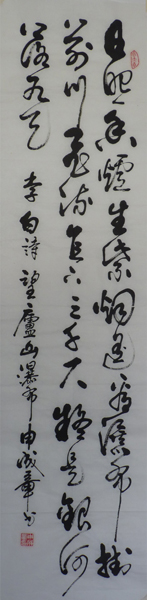 日照香爐生紫烟遥看瀑布掛
前川飛流直下三千尺疑是銀河
落九天 李白詩望廬山瀑布申成華書